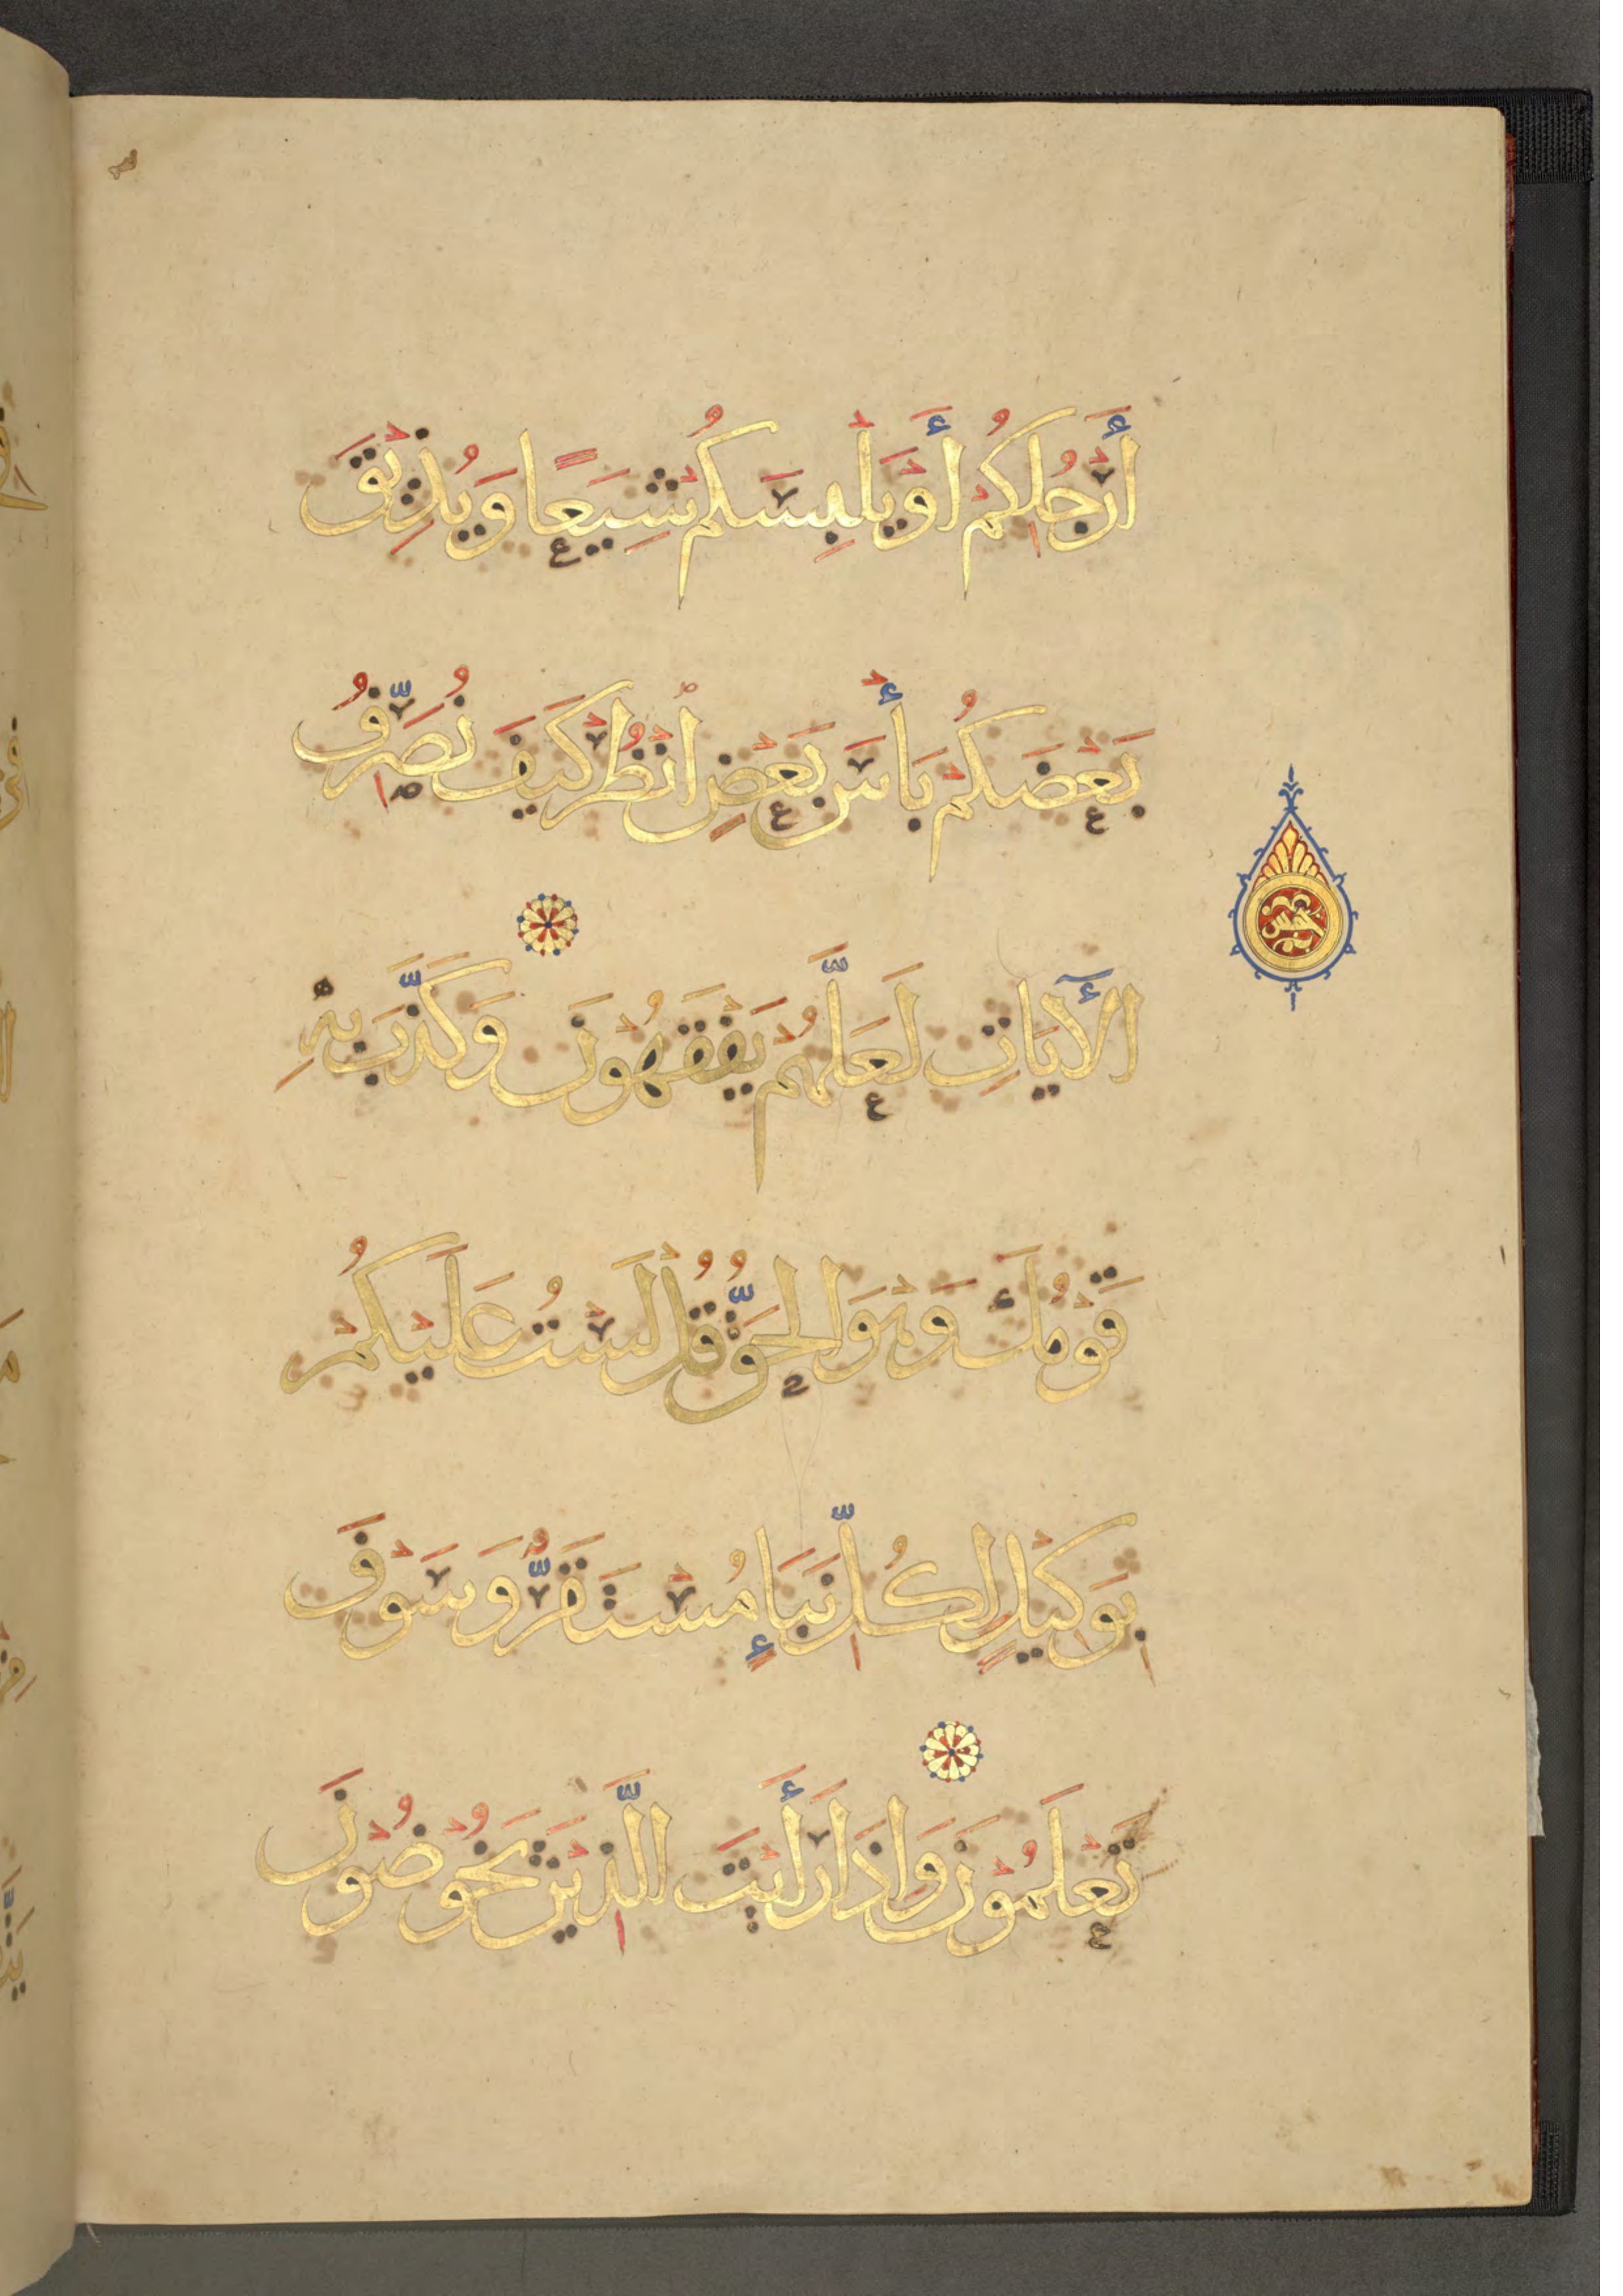 أَرْجُلِكُمْ أَوْ يَلْبِسَكُمْ شِيَعًا وَيُذِيْقَ
بَعْضَكُمْ بَأْسَ بَعْضٍ انْظُرْ كَيْفَ نُصَرِّفُ
الْآيَاتِ لَعَلَّهُمْ يَفْقَهُوْنَ وَكَذَّبَ بِهِ
خمس
قَوْمُكَ وَهْوَ الْحَقُّ قُلْ لَسْتُ عَلَيْكُمْ
بِوَكِيْلٍ لِكُلِّ نَبَإٍ مُسْتَقَرٌّ وَسَوْفَ
تَعْلَمُوْنَ وَإِذَا رَأَيْتَ الَّذِيْنَ يَخُوْضُوْنَ